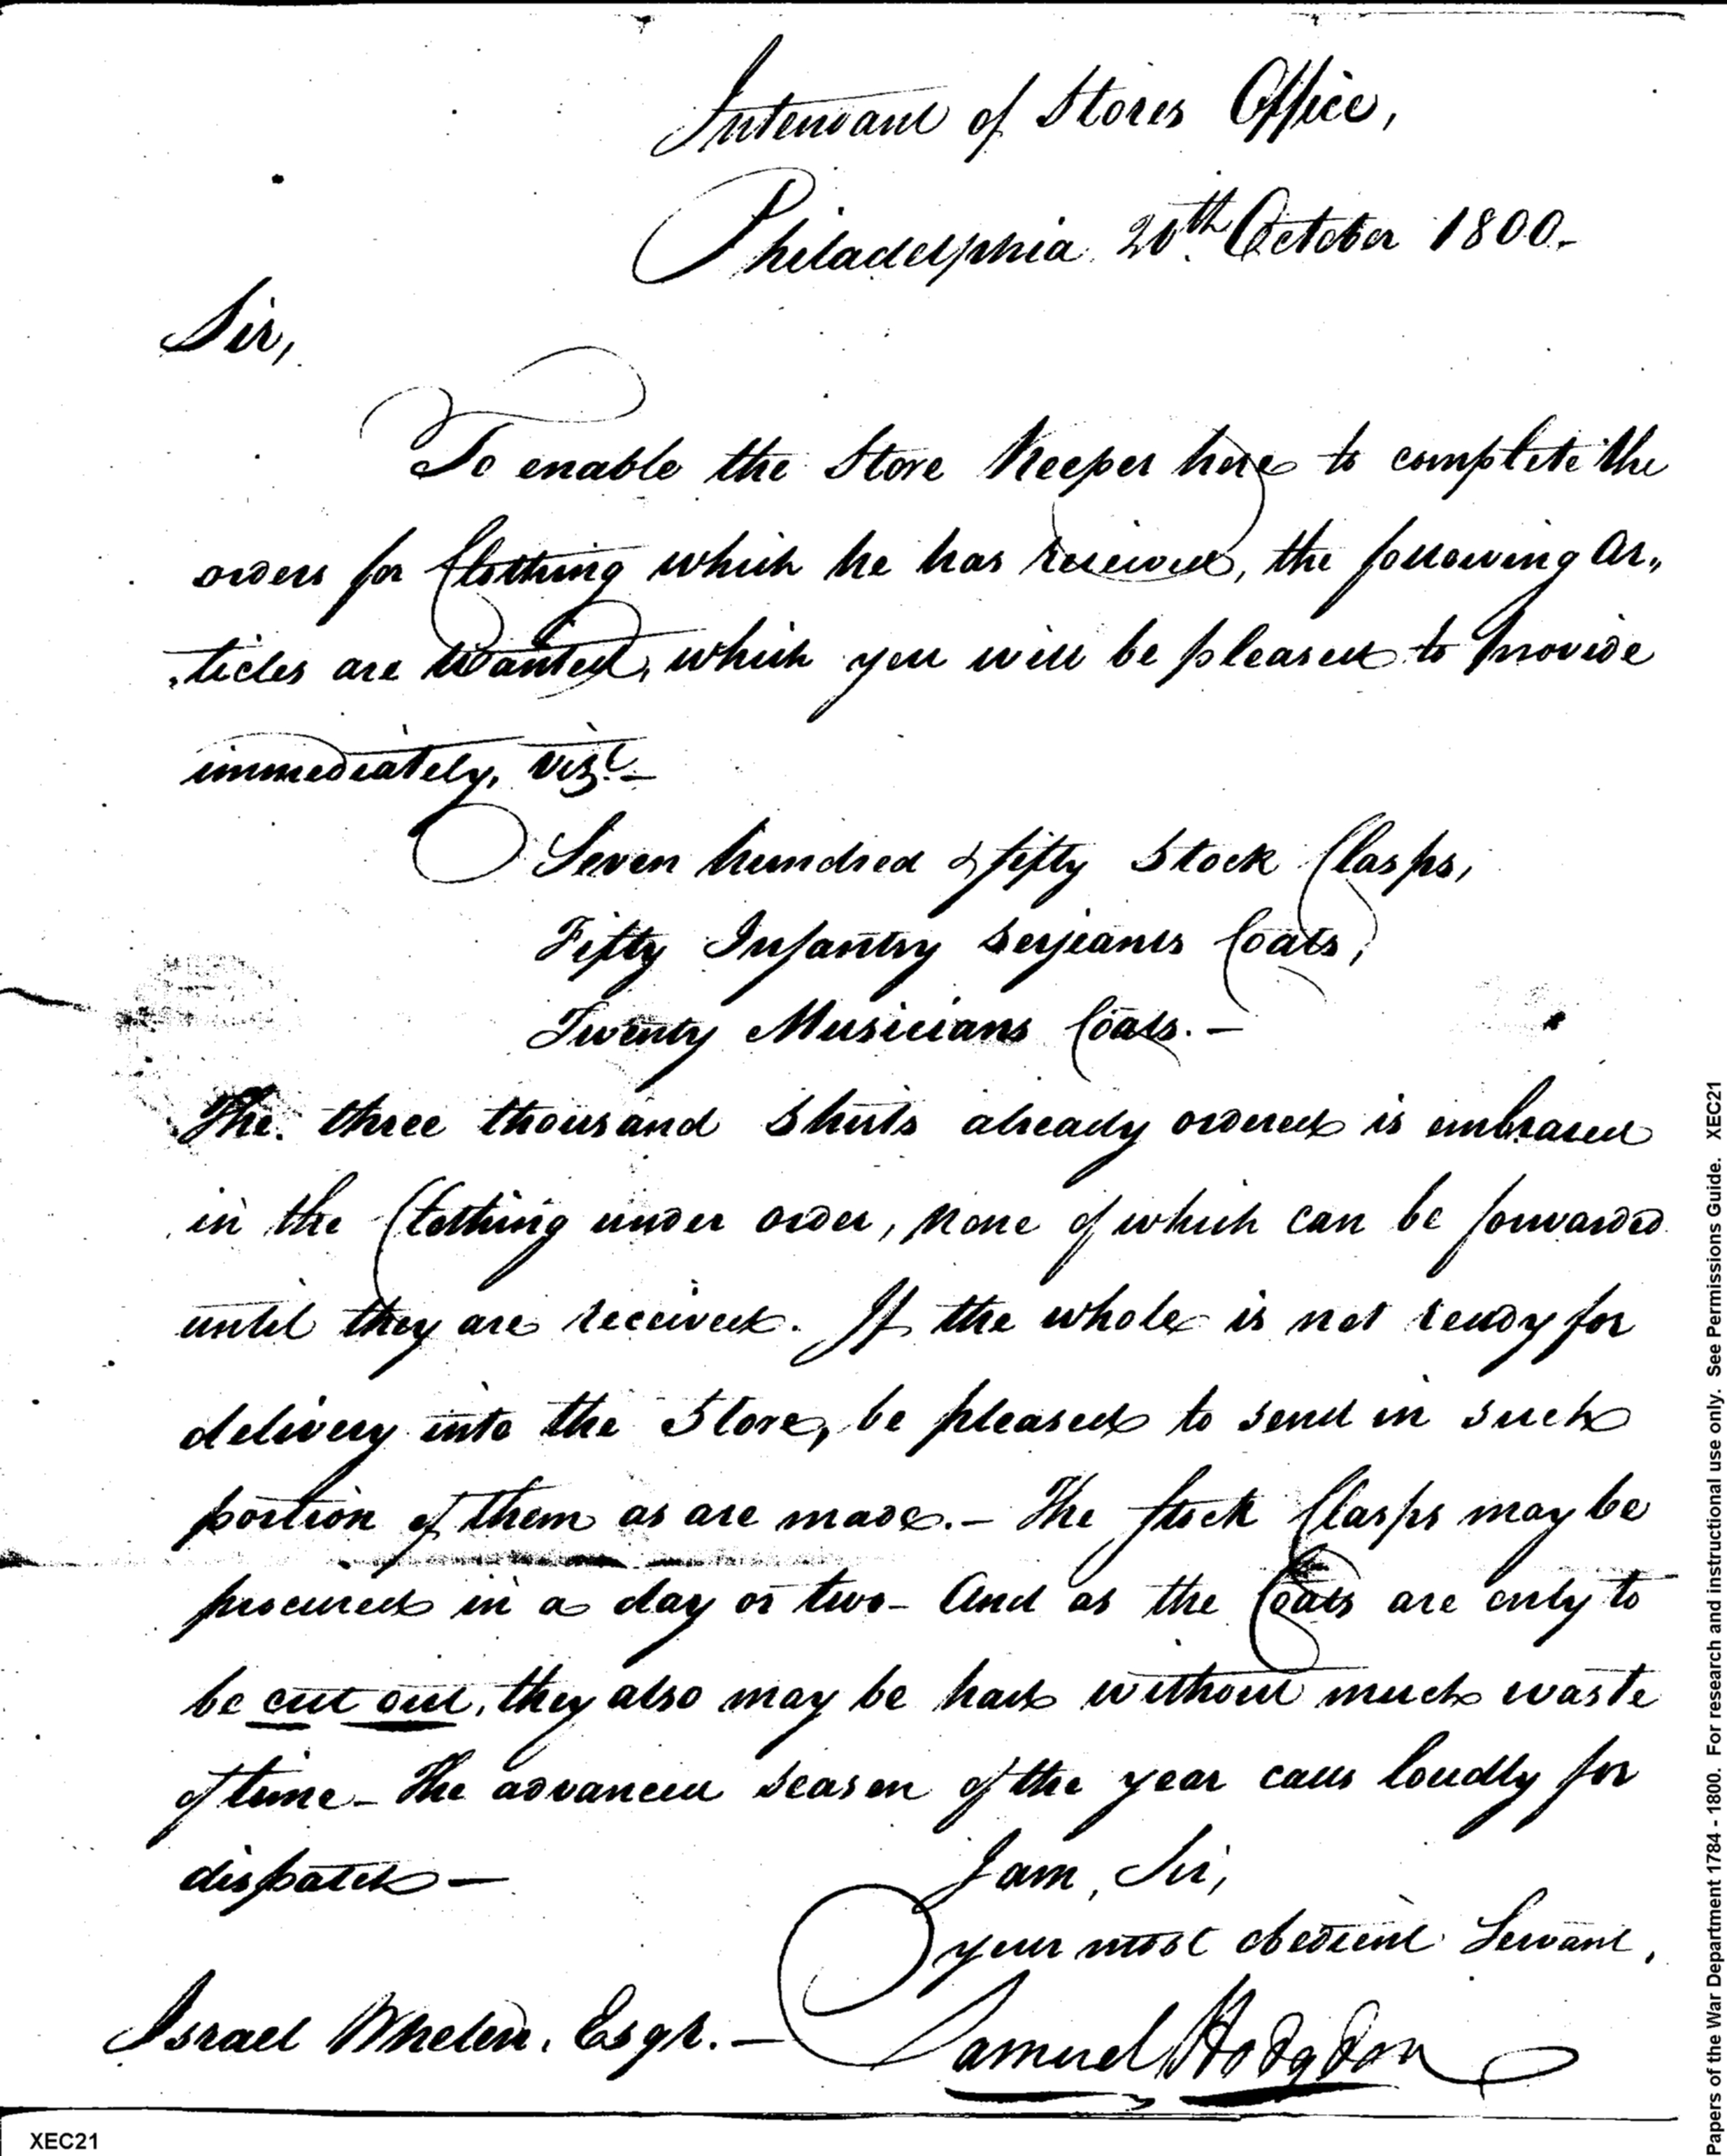 Intendant of Stores Office,
Philadelphia 20th. October 1800.
Sir,
To enable the Store Keeper here to complete the
orders for Clothing which he has received, the following Ar,,
,,ticles are wanted, which you will be pleased to provide
immediately, Vizt.—
Seven hundred & fifty Stock Clasps,
Fifty Infantry Serjeants Coats,
Twenty Musicians Coats.—
The three thousand Shirts already ordered is embraced
in the Clothing under order, none of which can be forwarded
until they are received. If the whole is not ready for
delivery into the Store, be pleased to send in such
portion of them as are made.— The stock Clasps may be
procured in a day or two— And as the Coats are only to
be cut out, they also may be had without much waste
of time— The advanced season of the year calls loudly for
dispatch—
I am, Sir,
your most obedient Servant,
Israel Whelen, Esqr.—
Samuel Hodgdon
XEC21
Papers of the War Department 1784 - 1800. For research and instructional use only. See Permissions Guide. XEC21